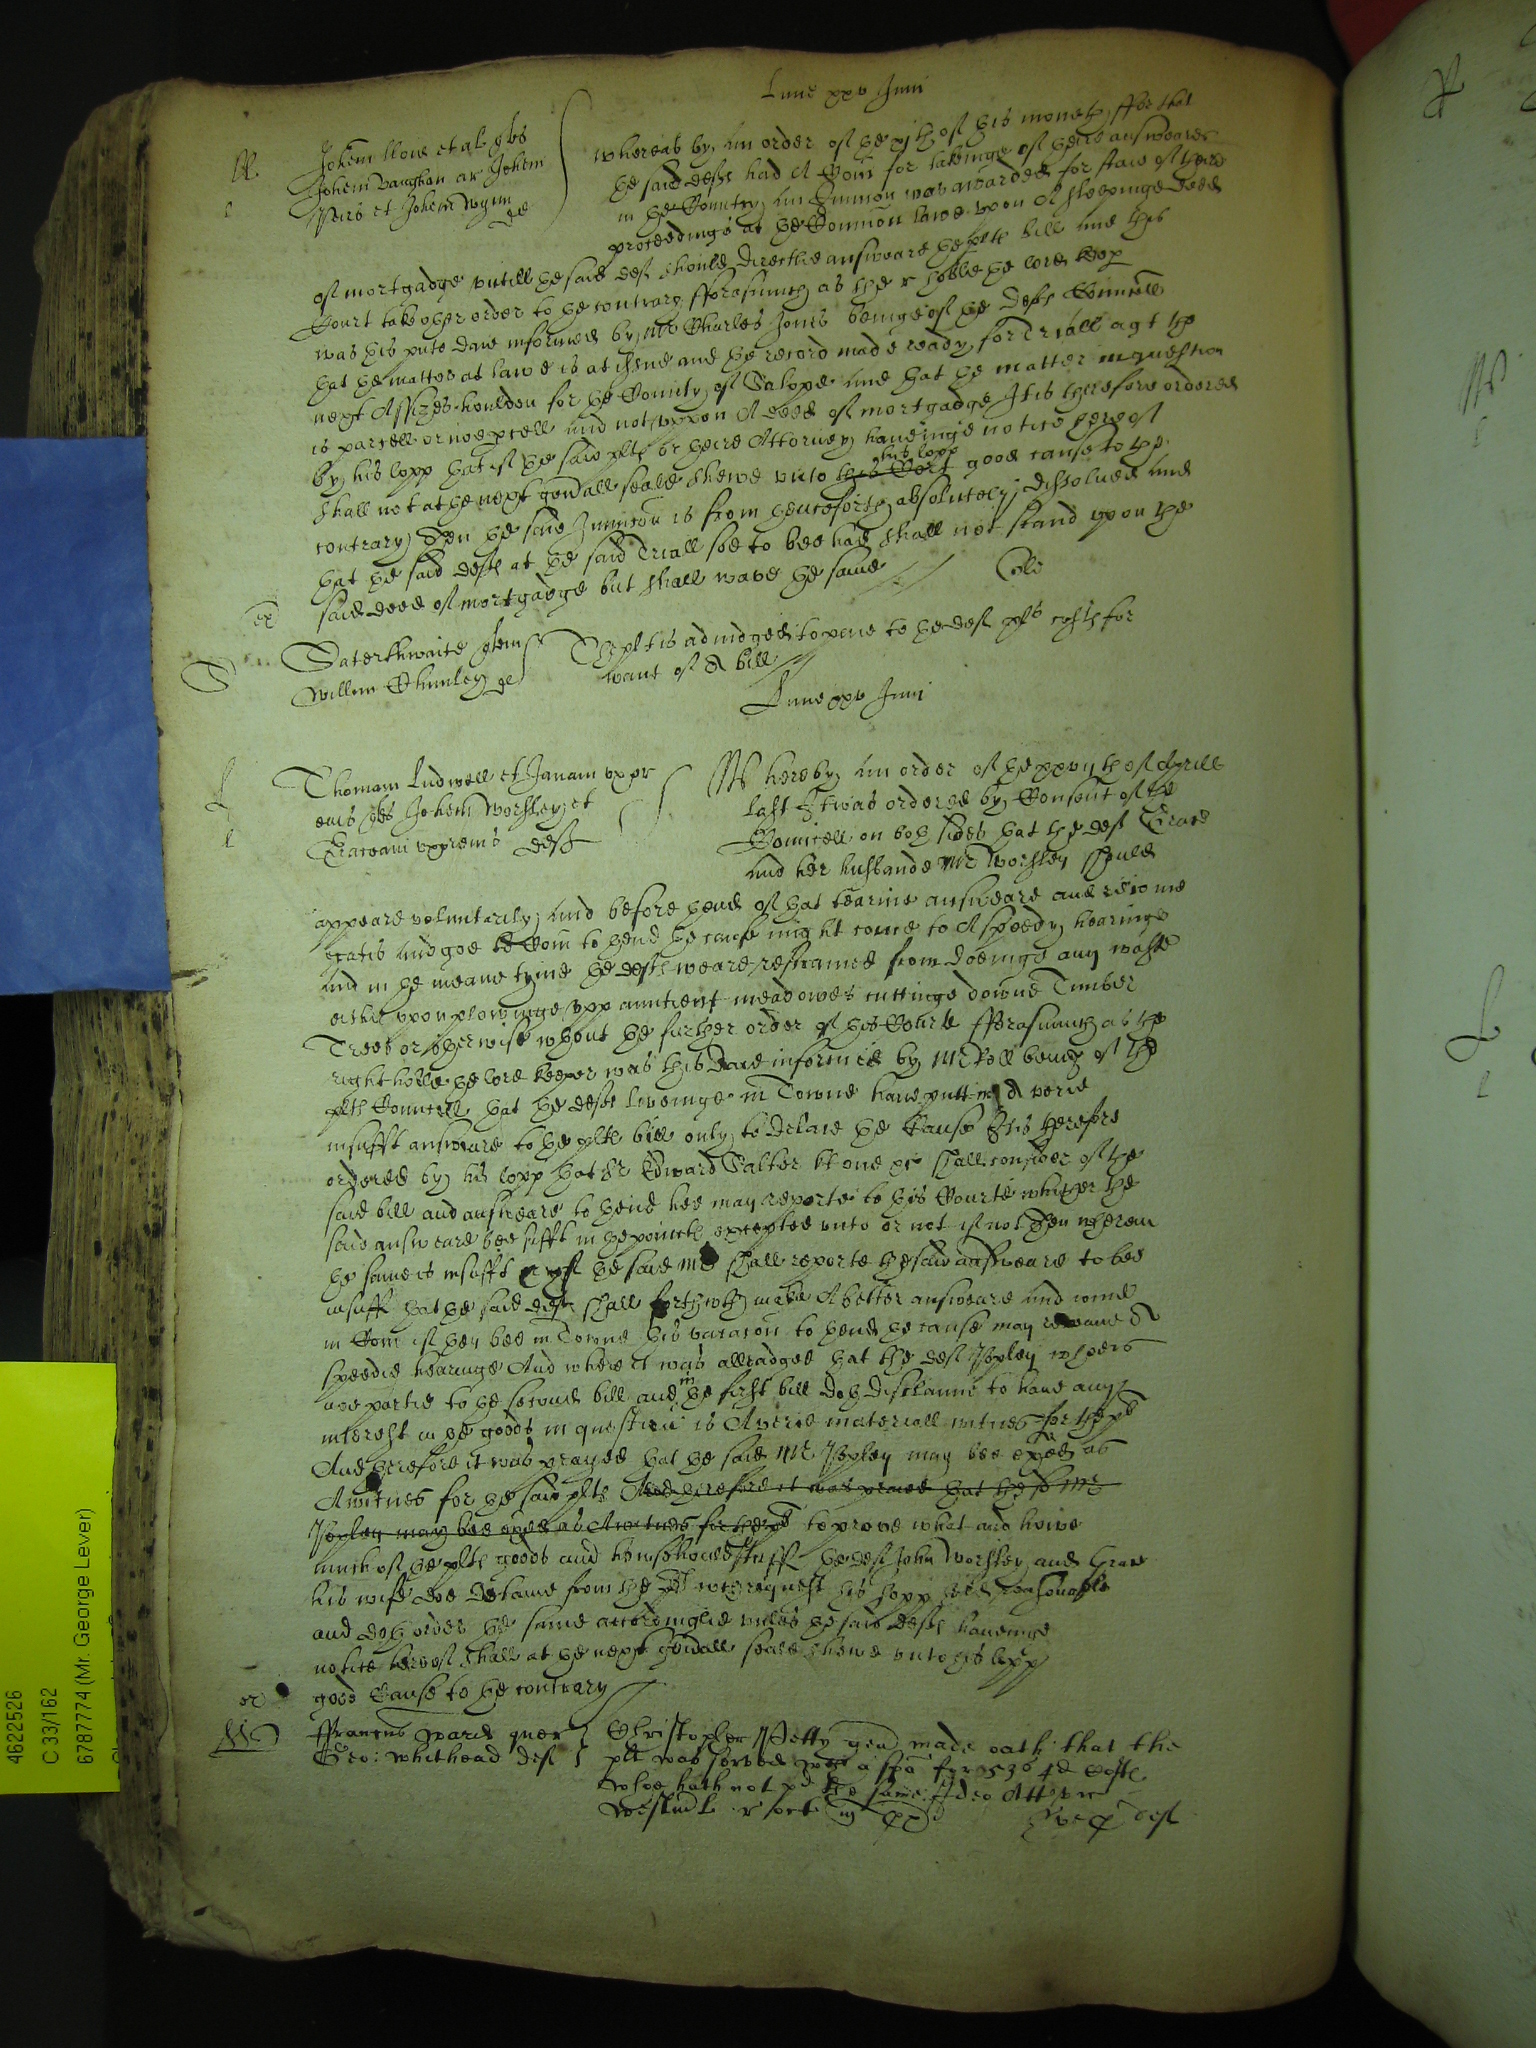 Lune xxv Junii
Johem lloid et al quer
Johem Vaughan ar Johem
et Johem Wynn
whereas by an order of the of this moneth ffor that
the said defts had A Comn for takinge of theire answeares
in the Countrey an Iniuncon was awarded for staie of theire
proceedings at the Common lawe upon A sleepinge deed
of mortgadge untill the said deft should directlie answeare the plts bill and this
Court take other order to the contrary fforasmuch as the r hoble the lord keep
was this pnte daie informed by Mr Charles Jones beinge of the defts Councell
that the matter at lawe is at issue and the record made ready for Triall agt the
next Assizes houlden for the County of Salopp and that the matter in question
is parcell or noe pcell and not uppon A deed of mortgadge It is therefore ordered
by his lopp that if the said plts or theire Attorney haveinge notice hereof
shall not at the next genall seale shewe unto this Cort his lopp good cause to the
contrary then the said Iniuncon is from henceforth absolutely dissolved and
that the said defts at the said Triall soe to bee had shall not stand upon the
said deed of mortgadge but shall wave the same
ex
Saterthwaite quer
Willm Chunley
The plt is adiudged to paie to the deft costs for
want of A bill
Lune xxv Junii
Thomam Ludwell et Janam uxor
eius quer Johem Worsley et
Graceam uxorem eius deft
Whereby an order of the xxvijth of Aprill
last It was ordered by Consent of the
Councell on both sides that the deft Grace
and her husbande Mr Worsley should
appeare voluntarily and before thend of that tearme answeare and reioine
gratis and goe to Com to thend the cause might come to A speedy hearinge
and in the meane tyme the defts weare restrained from doeinge any waste
either upon plowinge upp auntient meadowes cuttinge downe Timber
Trees or otherwise wthout the further order of this Courte fforasmuch as the
right hoble the lord keeper was this daie informed by Mr Roll beinge of the
plts Councell that the defts liveinge in Towne have putt in A verie
insufft answeare to the plts bill only to delaie the Cause It is therefore
ordered by his lopp that Sr Edward Salter kt one shall consider of the
said bill and answeare to thend hee may reporte to this Courte whether the
said answeare bee sufft in the points excepted unto or not if not then wherein
the same is insufft if the said Mr shall reporte the said answeare to bee
insufft that the said defts shall forthwth make A better answeare and ioine
in Com if they bee in Towne this vacacon to thend the cause may receaive A
speedie hearinge And where it was alleadged that the deft Yxpley whoe is
noe partie to the second bill and in the first bill doth disclaime to have any
interest in the goods in question is A verie materiall witnes for the plts
And therefore it was prayed that the said Mr Yxpley may bee exaed as
A witnes for the said plts And therefore it was praied that the sd Mr
Yxpley may bee exaed as A witnes for the plts to prove what and howe
much of the plts goods and household stuff the deft John Worsley and Grace
his wife doe detaine from the plts wch request his lopp held reasonable
and doth order the same accordinglie unles the said defts haveinge
notice hereof shall at the next genall seale shewe unto his lopp
good Cause to the contrary
ex
ffrancus Ward quer
Geo: Whithead deft
Christopher Petty gen made oath that the
plt was served wth a spa for 53s 4d Costs
whoe hath not pd the same Ideo Attach
deft
4622526
C 33/162
6787774 (Mr. George Lever)